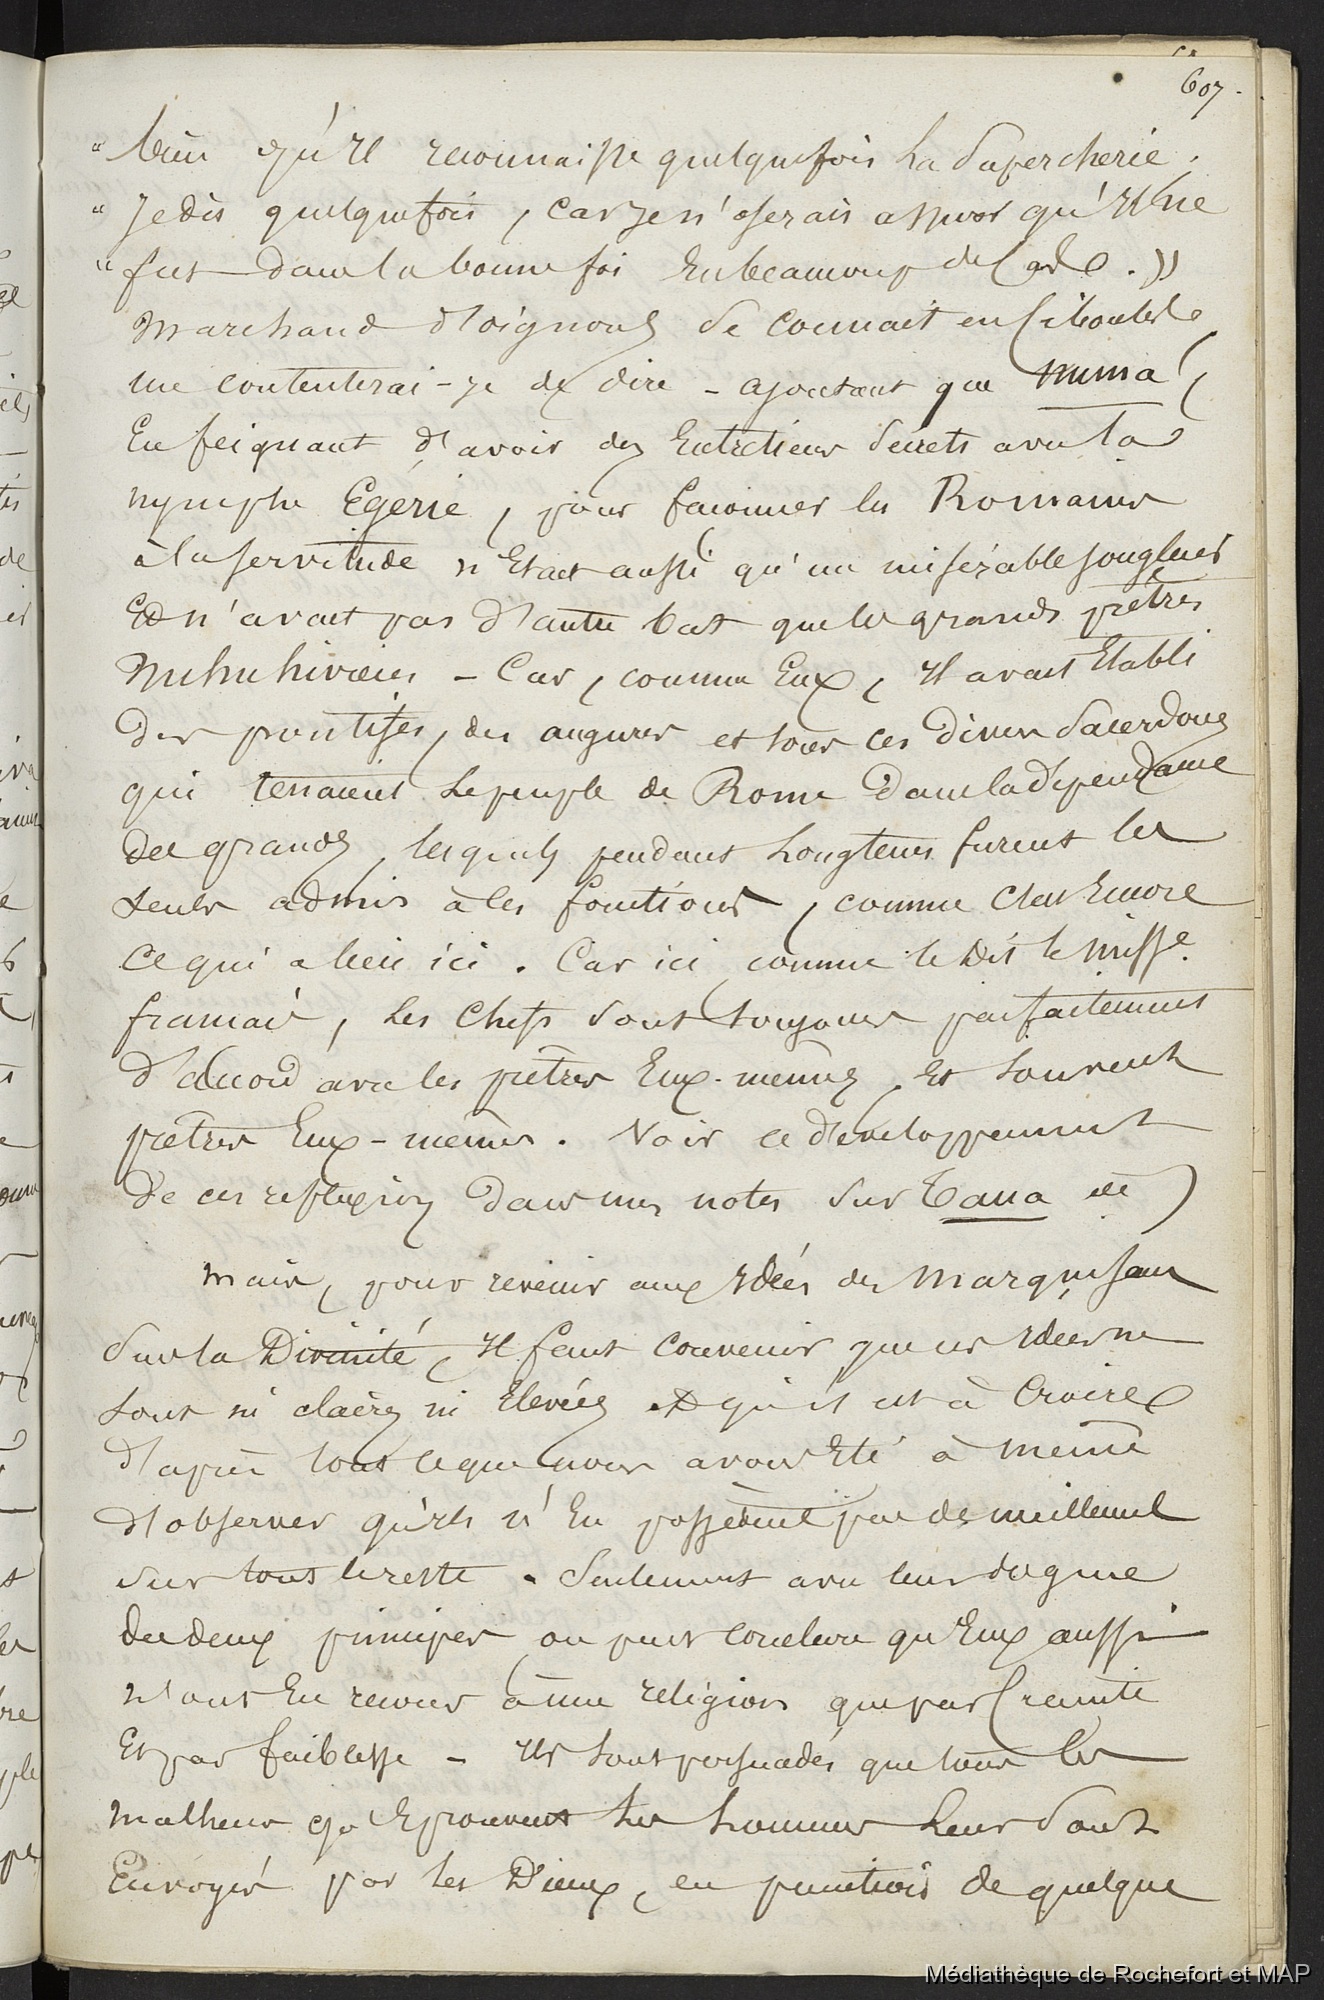 607.
" bien qu'Il reconnaisse quelquefois la Supercherie.
" Je dis quelquefois, car je n'oserais assurer qu'Il ne
" fut dans la bonne foi En beaucoup de Cas. »
Marchand d'oignons Se connait en Ciboules
me contenterai-je de dire - ajoutant que Numa,
En feignant d'avoir des Entretiens Secrets avec la
nymphe Egerie, pour façonner les Romains
à la servitude n'Etait aussi qu'un misérable jongleur
Et n'avait pas d'autre but que les grands prêtres
Nukuhiviens - Car, comme Eux, Il avait Etabli
des pontifes, des augures et tous ces divers Sacerdoces
qui tenaient le peuple de Rome dans la dépendance
des grands, lesquels pendant longtems furent les
seuls admis à les fonctions, comme c'est Encore
ce qui a lieu ici. Car ici, comme le dit le miss.re
français, les Chefs sont toujours parfaitement
d'accord avec les prêtres Eux-mêmes, Et souvent
prêtres Eux-mêmes. Voir ce développement
de ces reflexions dans mes notes sur Taua etc)
Mais, pour revenir aux Idées des Marquisans
sur la Divinité, Il faut convenir que ces Idées ne
sont ni claires ni Elevées Et qu'il est à Croire
d'après tout ce que nous avons Eté à même
d'observer qu'Ils n'En possèdent pas de meilleures
sur tout le reste. Seulement avec leur dogme
des deux principes on peut conclure qu'Eux aussi
n'ont Eu recours à une religion que par Crainte
Et par faiblesse - Ils sont persuadés que tous les
malheurs qu'Eprouvent les hommes leur sont
Envoyés par les Dieux, en punition de quelque
Médiathèque de Rochefort et MAP